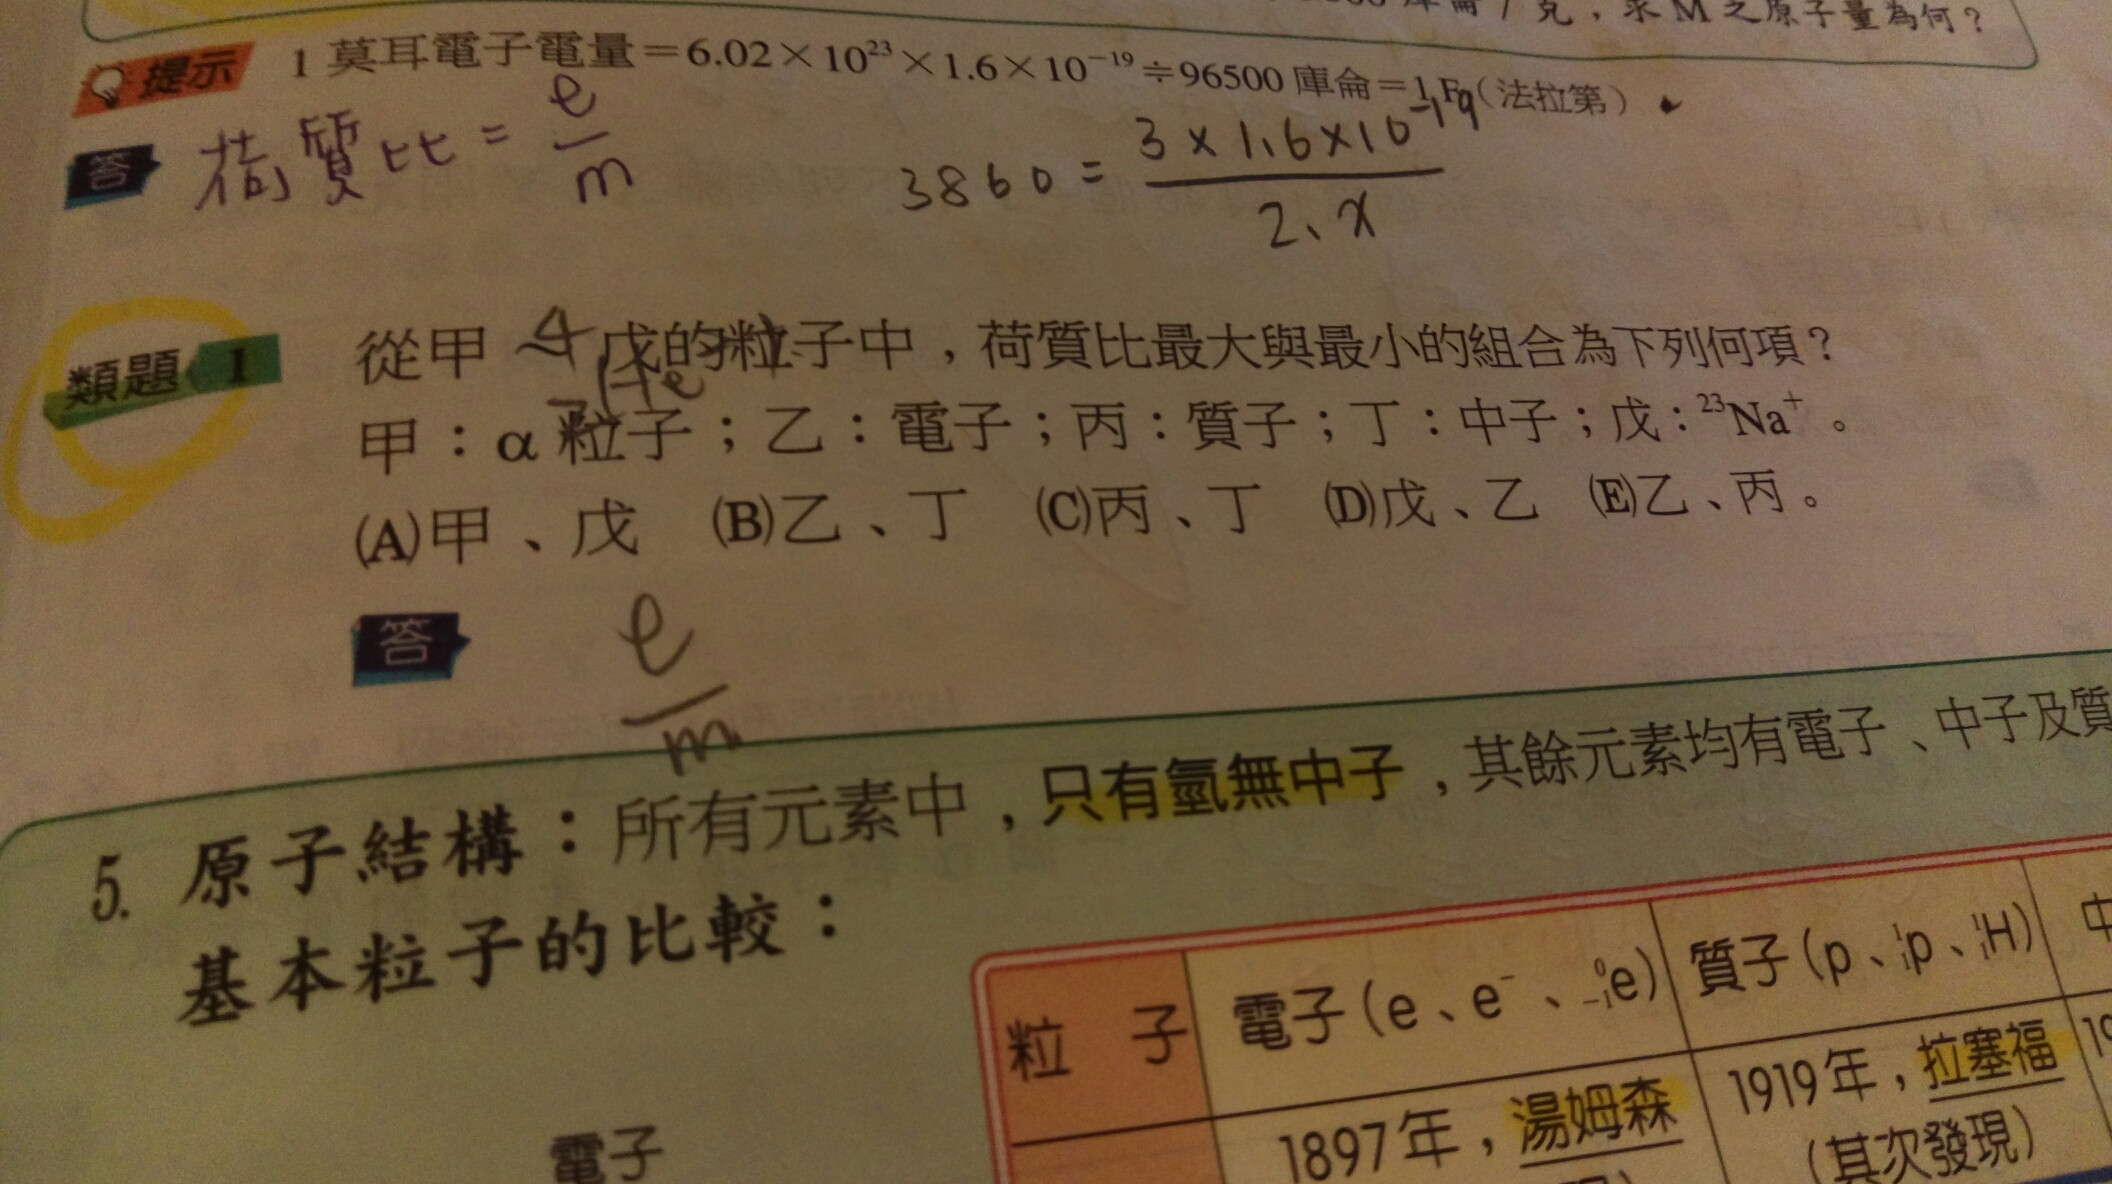 庫侖／克，求M之原子量為何？
提示 1莫耳電子電量＝6.02×10²³×1.6×10⁻¹⁹≑96500庫侖＝1 F（法拉第）
答 荷質比 = e/m
3860 = 3×1.6×10⁻¹⁹/2、x
類題 1 從甲 戊的粒子中，荷質比最大與最小的組合為下列何項？
4
He
甲：α粒子；乙：電子；丙：質子；丁：中子；戊：²³Na⁺。
(A)甲、戊 (B)乙、丁 (C)丙、丁 (D)戊、乙 (E)乙、丙。
答 e/m
5. 原子結構：所有元素中，只有氫無中子，其餘元素均有電子、中子及質
基本粒子的比較：
粒 子 電子(e、e⁻、⁰₋₁e) 質子(p、¹₁p、¹₁H) 中
1897年，湯姆森 1919年，拉塞福 19
(其次發現)
電子